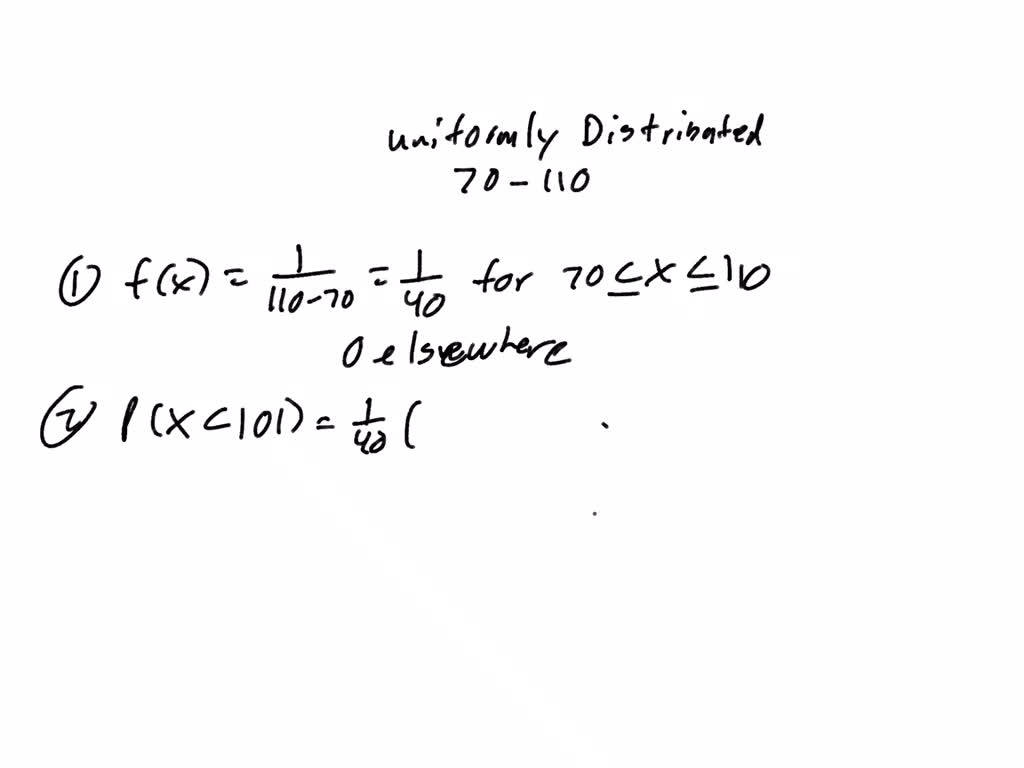 uniformly Distributed
70 - 110
① f(x) = 1/(110-70) = 1/40 for 70 ≤ x ≤ 110
0 elsewhere
② P(X < 101) = 1/40 (